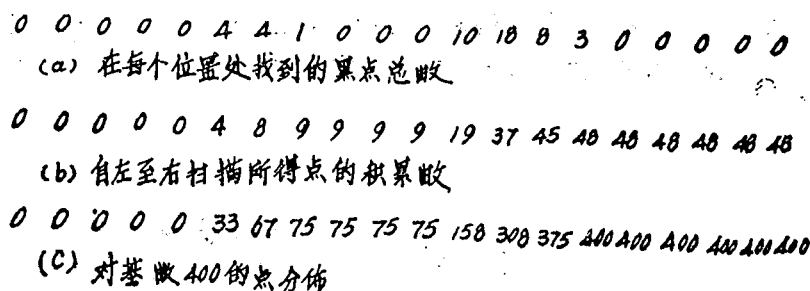 0 0 0 0 0 4 4 1 0 0 0 10 18 8 3 0 0 0 0 0
(a) 在每个位置处找到的黑点总数
0 0 0 0 0 4 8 9 9 9 9 19 37 45 48 48 48 48 48 48
(b) 自左至右扫描所得点的积累数
0 0 0 0 0 33 67 75 75 75 75 158 308 375 400 400 400 400 400 400
(C) 对基数400的点分佈